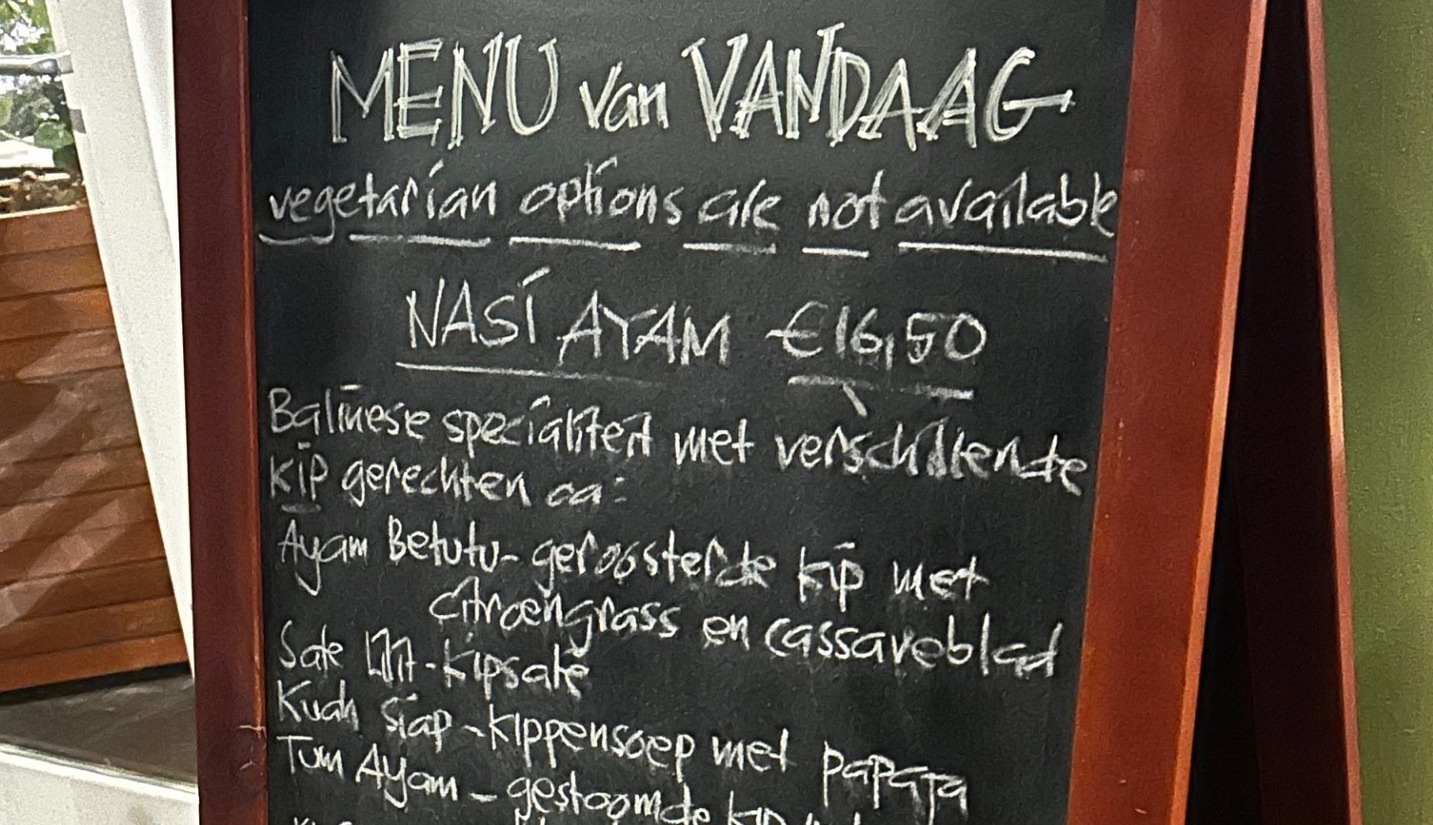 MENU van VANDAAG
vegetarian options are not available
NASI AYAM €16,50
Balinese specialiteit met verschillende
kip gerechten oa:
Ayam Betutu- geroosterde kip met
citroengrass en cassaveblad
Sate Lilit - kipsate
Kuah Siap - kippensoep met papaja
Tum Ayam - gestoomde kip